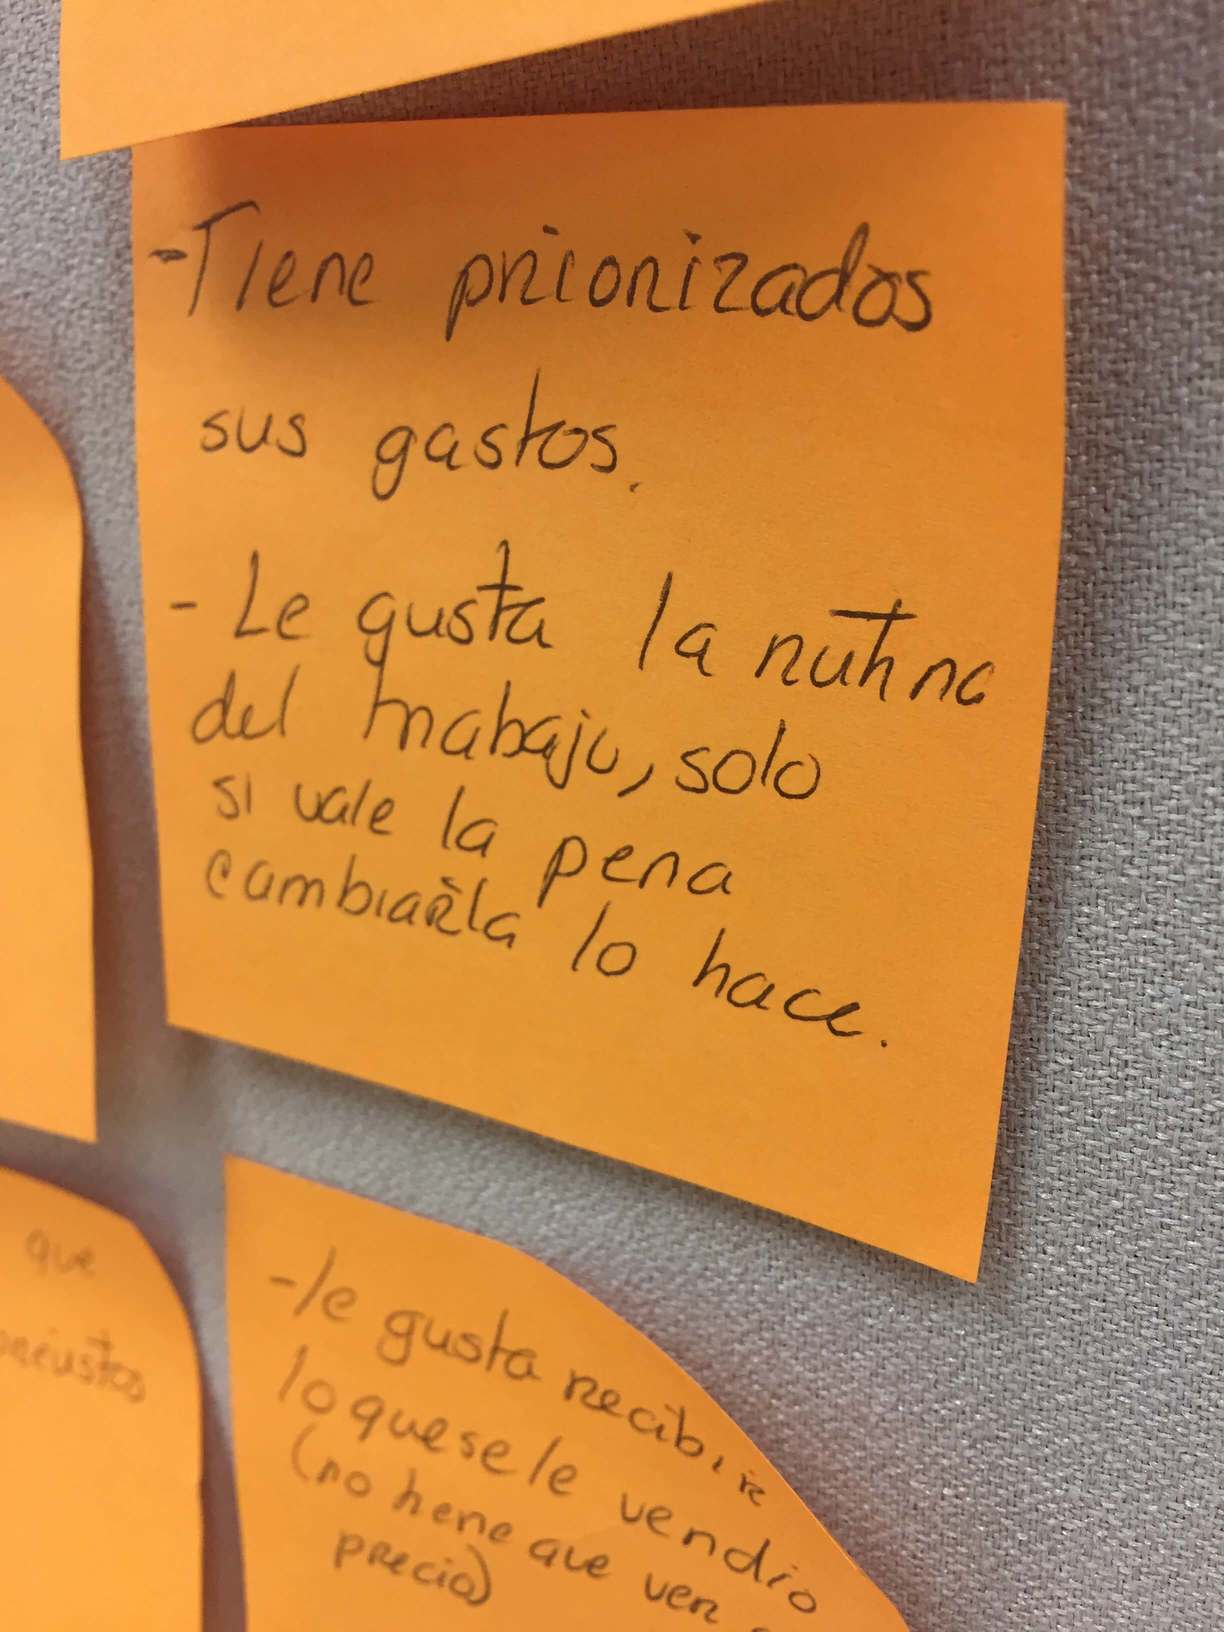 -Tiene priorizados
sus gastos.
- Le gusta la rutina
del trabajo, solo
si vale la pena
cambiarla lo hace.
que
-le gusta recibir
lo que se le vendio
(no tiene que ver
precio)